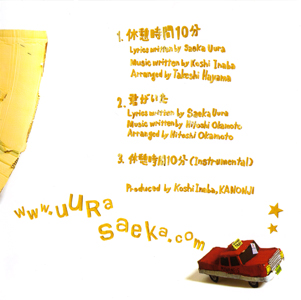 1. 休憩時間10分
Lyrics written by Saeka Uura
Music written by Koshi Inaba
Arranged by Takeshi Hayama
2. 君がいた
Lyrics written by Saeka Uura
Music written by Hitoshi Okamoto
Arranged by Hitoshi Okamoto
3. 休憩時間10分 (Instrumental)
Produced by Koshi Inaba, KANONJI
www.uuRa
saeka.com